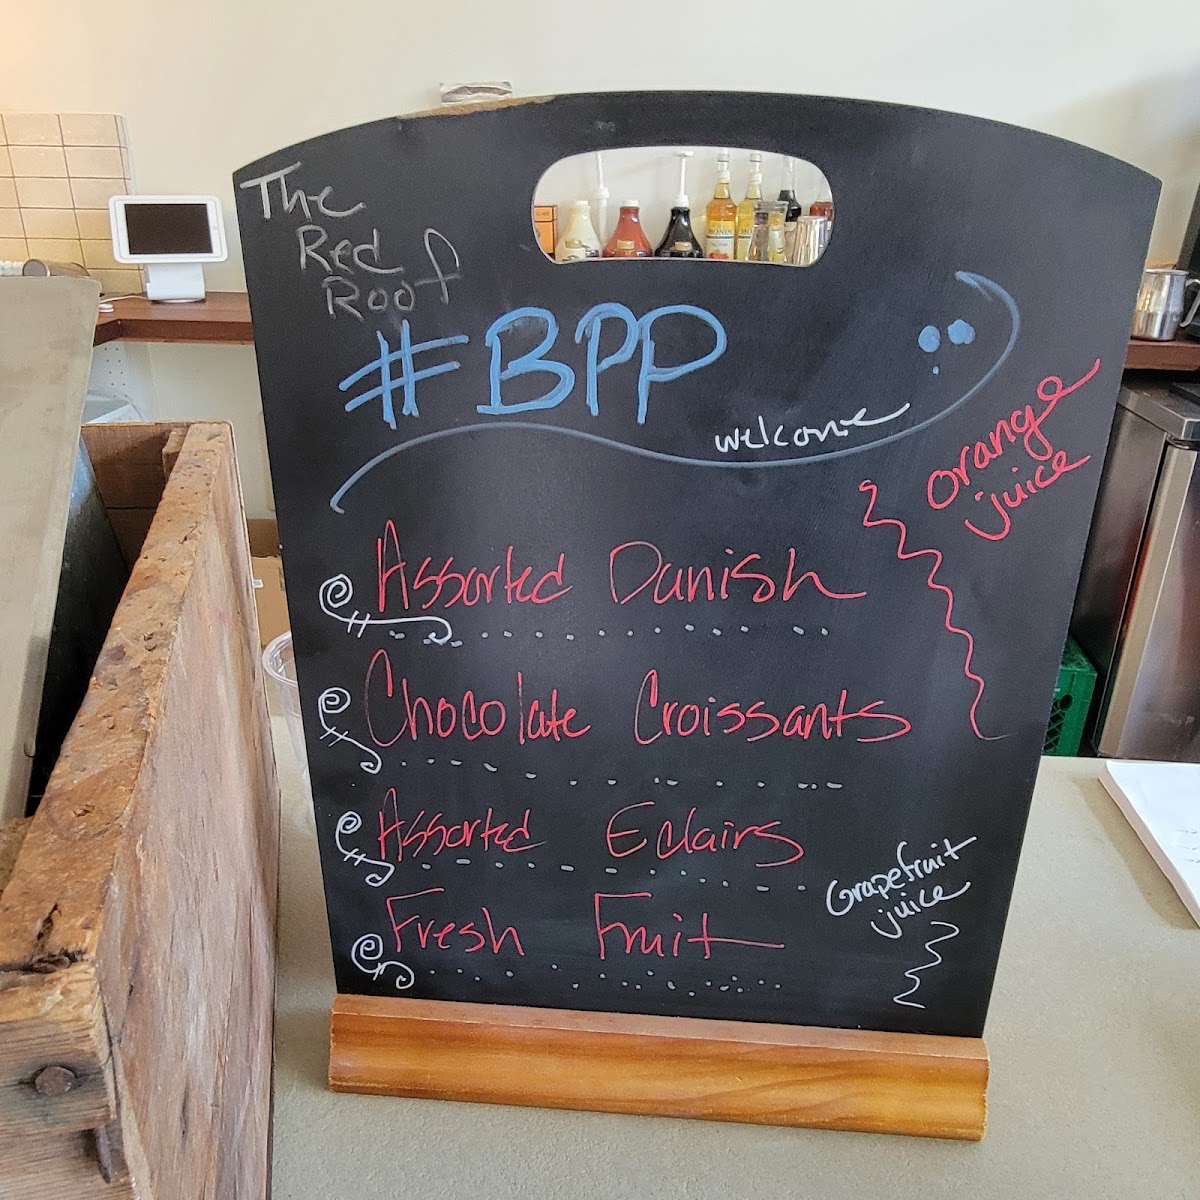 The
Red
Roof
#BPP
welcome
orange
juice
Assorted Danish
Chocolate Croissants
Assorted Eclairs
Grapefruit
juice
Fresh Fruit
MONIN